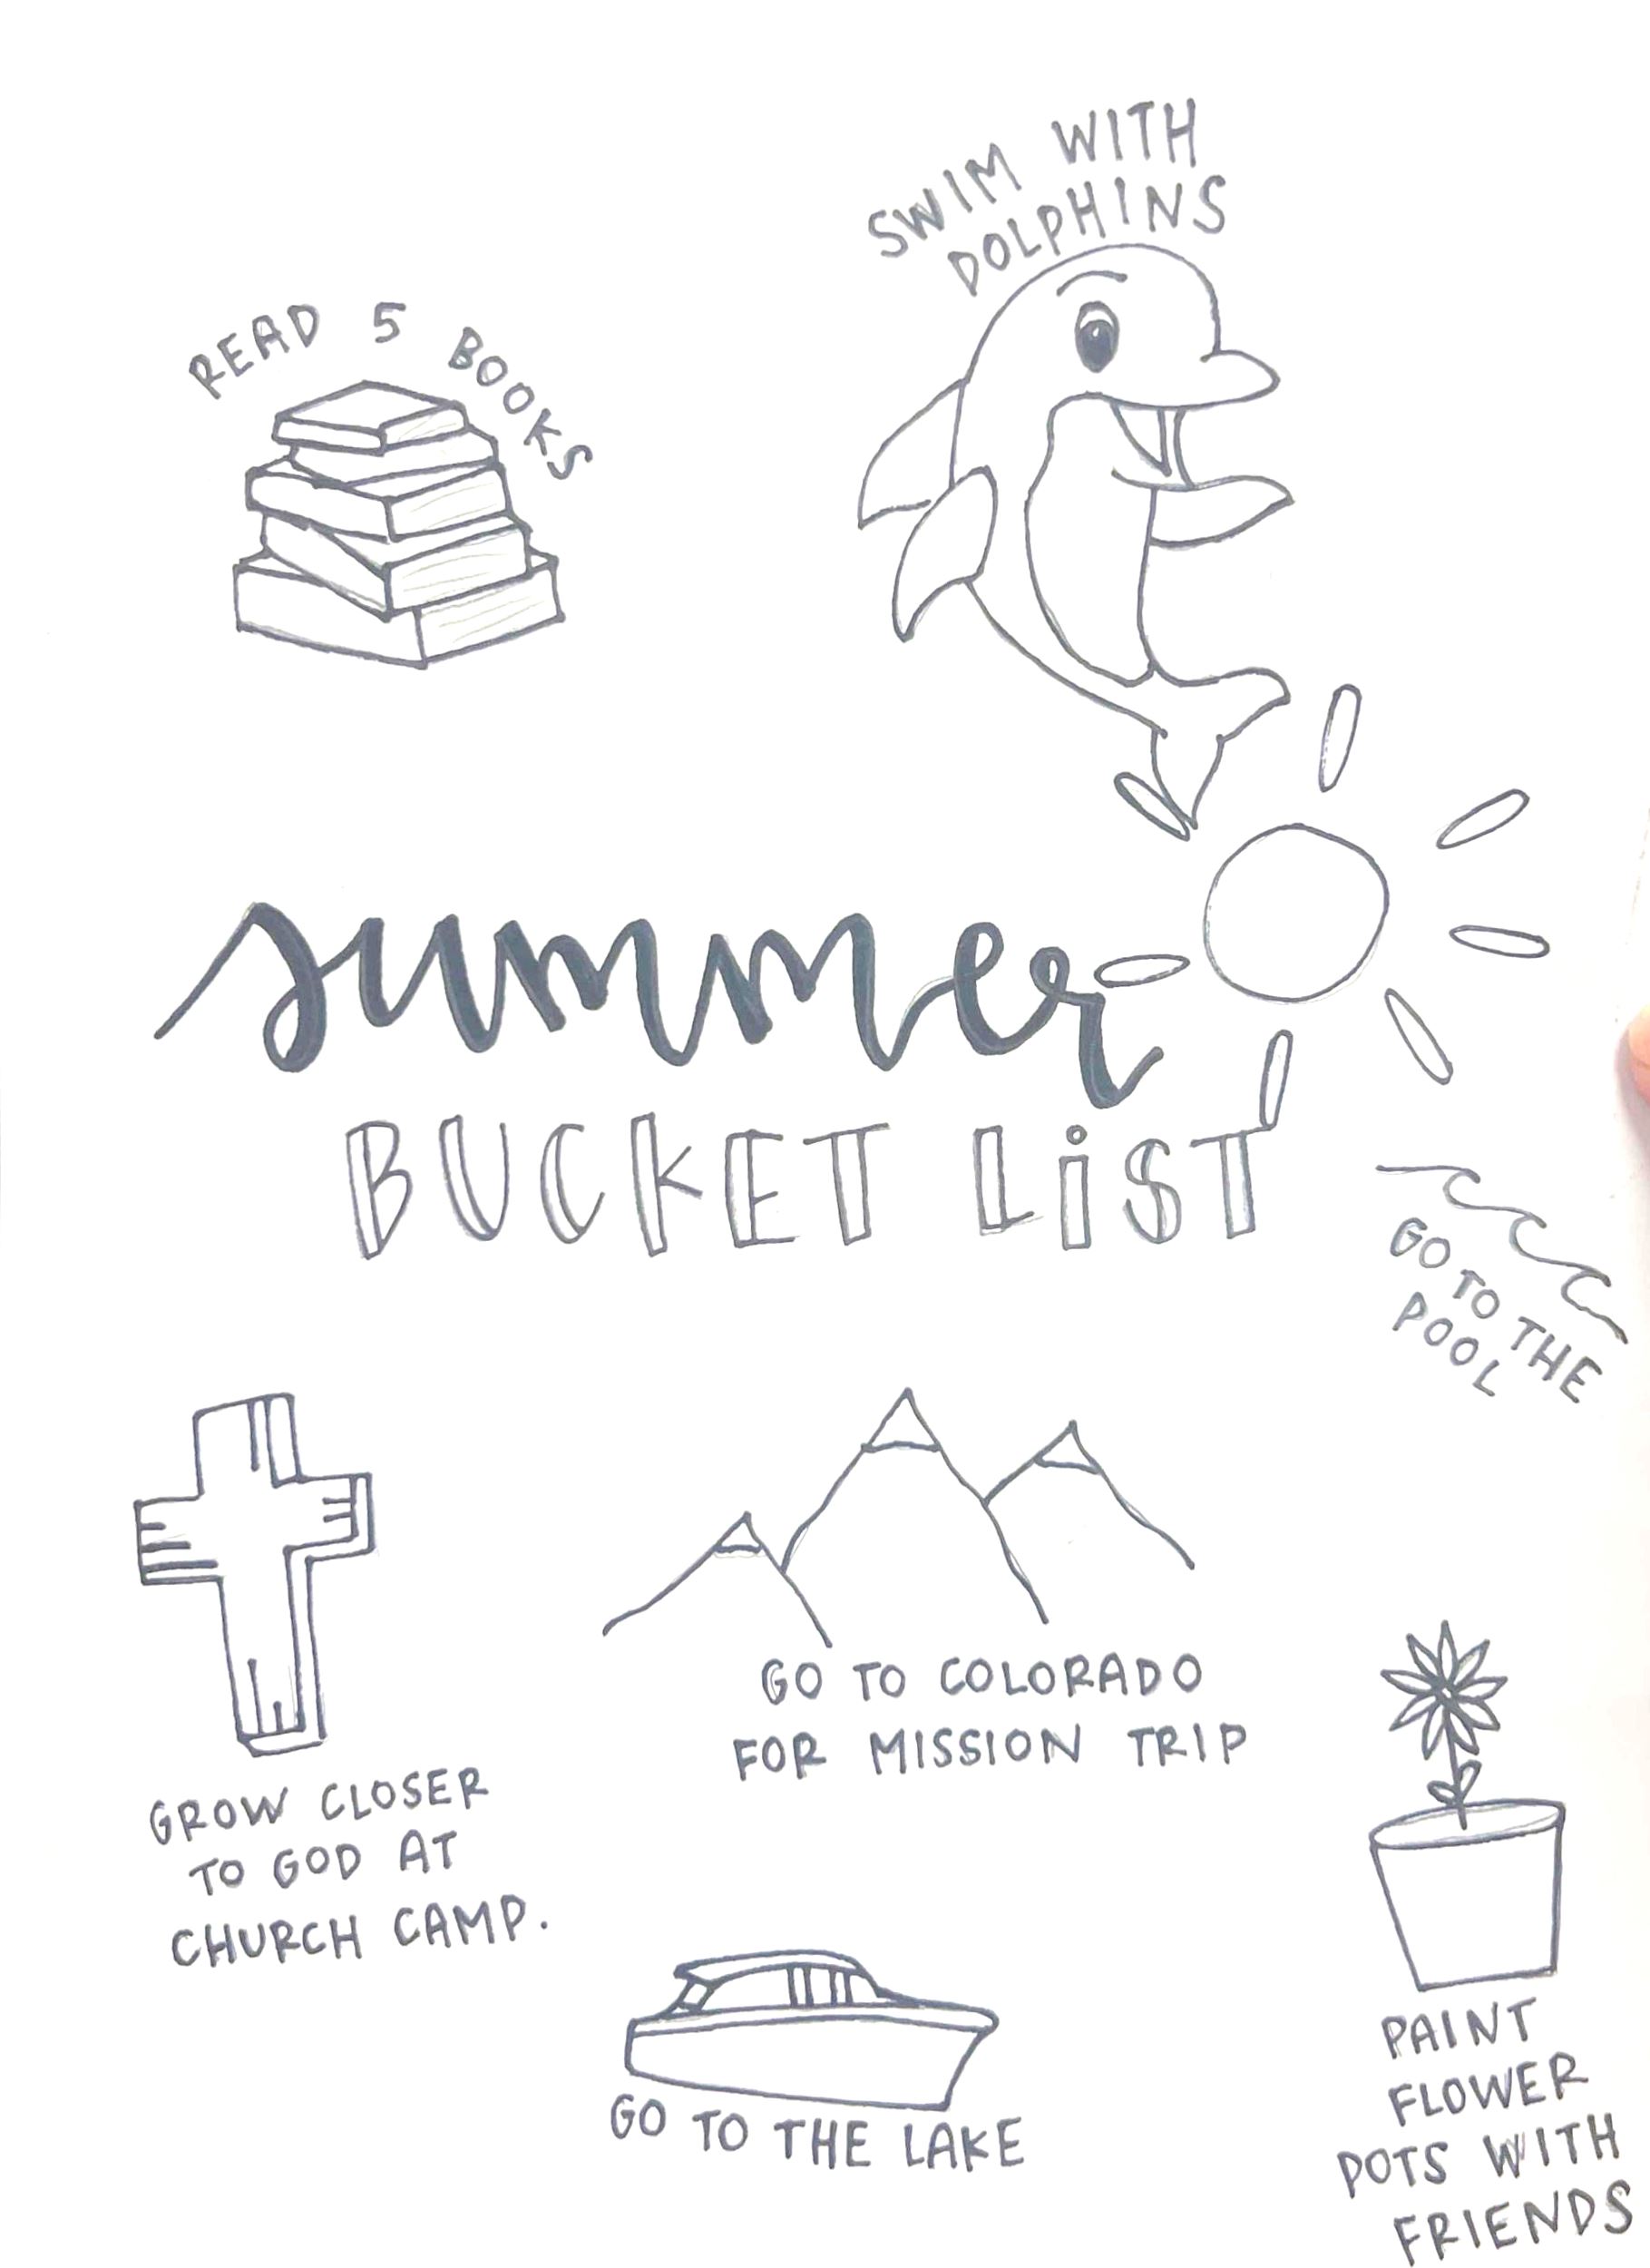 SWIM WITH
DOLPHINS
READ 5 BOOKS
summer
BUCKET LiST
GO TO THE
POOL
GO TO COLORADO
FOR MISSION TRIP
GROW CLOSER
TO GOD AT
CHURCH CAMP.
GO TO THE LAKE
PAINT
FLOWER
POTS WITH
FRIENDS